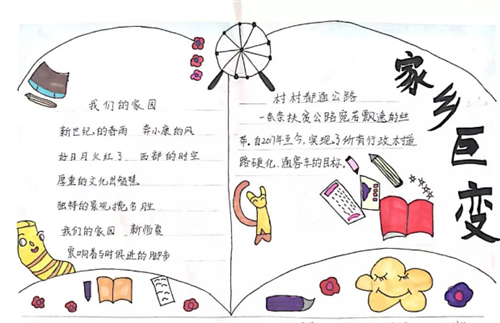 家乡巨变
我们的家园
新世纪的春雨 奔小康的风
好日月火红了 西部的时空
厚重的文化
独特的景观 名胜
我们的家园 新
震响着与时俱进的脚步
村村都通公路
一条条扶贫公路宛若飘逸的丝
带。自2017年至今,实现了所有行政村道
路硬化,通客车的目标。